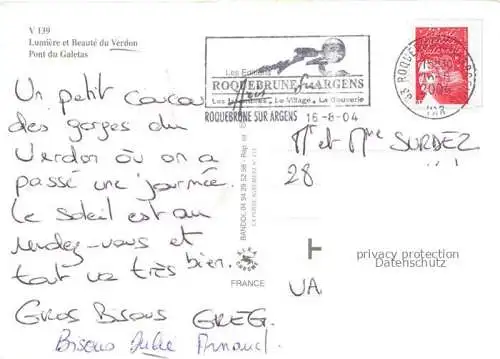 V 139
Lumière et Beauté du Verdon
Pont du Galetas
Un petit coucou
des gorges du
Verdon où on a
passé une journée.
Le soleil est au
rendez-vous et
tout va très bien.
Gros Bisous GREG.
Bisous Julie Arnaud
ROQUEBRUNE SUR ARGENS
Le Village
ROQUEBRUNE SUR ARGENS 16-8-04
2004
VAR
Mr et Mme SURDEZ
28
VA
privacy protection
Datenschutz
BANDOL 04 94 29 52 98
FRANCE